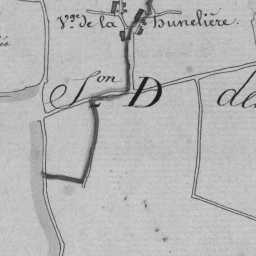 V.ge de la Hunelière.
S.on D de